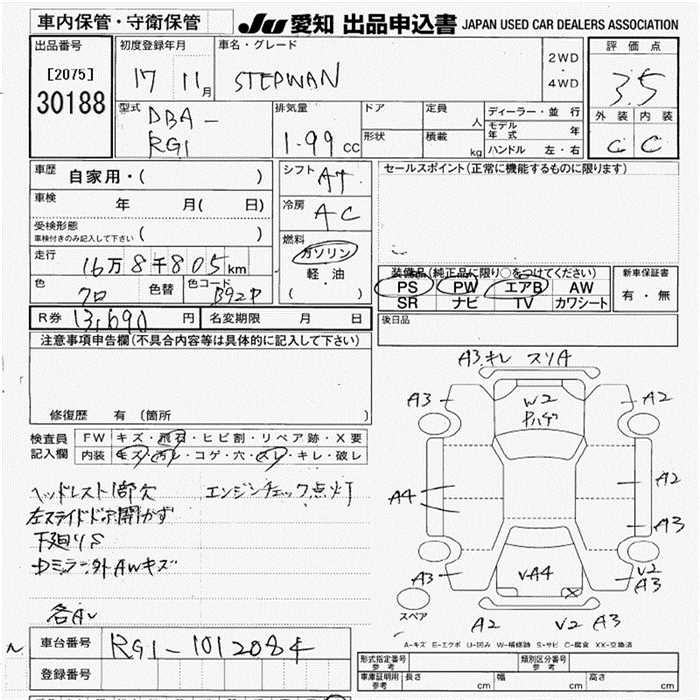 車内保管・守衛保管
JU 愛知 出品申込書 JAPAN USED CAR DEALERS ASSOCIATION
出品番号
[2075]
30188
初度登録年月
17 11月
車名・グレード
STEPWAN
2WD
・
4WD
評価点
3.5
外装 内装
C C
型式
DBA-
RG1
排気量
1.99 cc
ドア
形状
定員 人
積載 kg
ディーラー・並行
モデル年式 年
ハンドル 左・右
車歴 自家用・( )
車検 年 月( 日)
受検形態
車検付きのみ記入して下さい ( )
走行 16万8千805km
色 クロ 色替 色コード B92P
シフト AT
冷房 AC
燃料
ガソリン
軽油
( )
セールスポイント(正常に機能するものに限ります)
装備品(純正品に限り○をつけてください)
PS PW エアB AW
SR ナビ TV カワシート
新車保証書
有・無
R券 13,690円 名変期限 月 日
後日品
注意事項申告欄(不具合内容等は具体的に記入して下さい)
修復歴 有 (箇所
検査員記入欄
FW キズ・飛石・ヒビ割・リペア跡・X要
内装 キズ・汚レ・コゲ・穴・スレ・キレ・破レ
ヘッドレスト1部欠 エンジンチェック点灯
左スライドドア開かず
下廻りS
Dミラー外AWキズ
各AU
A3キレ スリA
A3 W2 A2
Pハゲ
A2
A4
A3
A3 V-A4 V2
A3
X
スペア
A2 V2 A3
A-キズ E-エクボ U-凹み W-補修跡 S-サビ C-腐食 XX-交換済
車台番号 RG1-1012084
登録番号
形式指定番号
参考
類別区分番号
参考
車庫証明用
参考
長さ cm 幅 cm 高さ cm